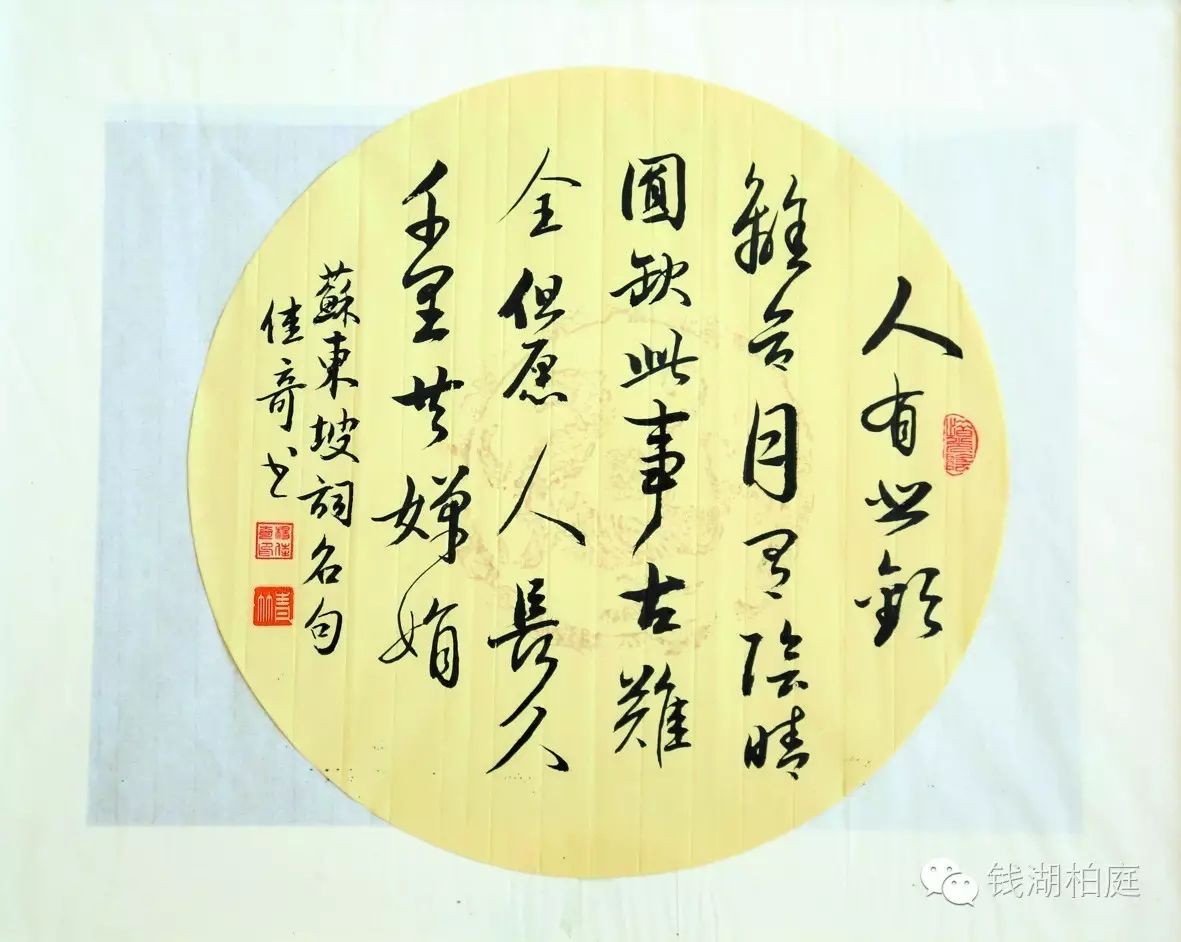 人有悲歡
離合月有陰晴
圓缺此事古難
全但愿人長久
千里共嬋娟
蘇東坡詞名句
佳奇书
钱湖柏庭